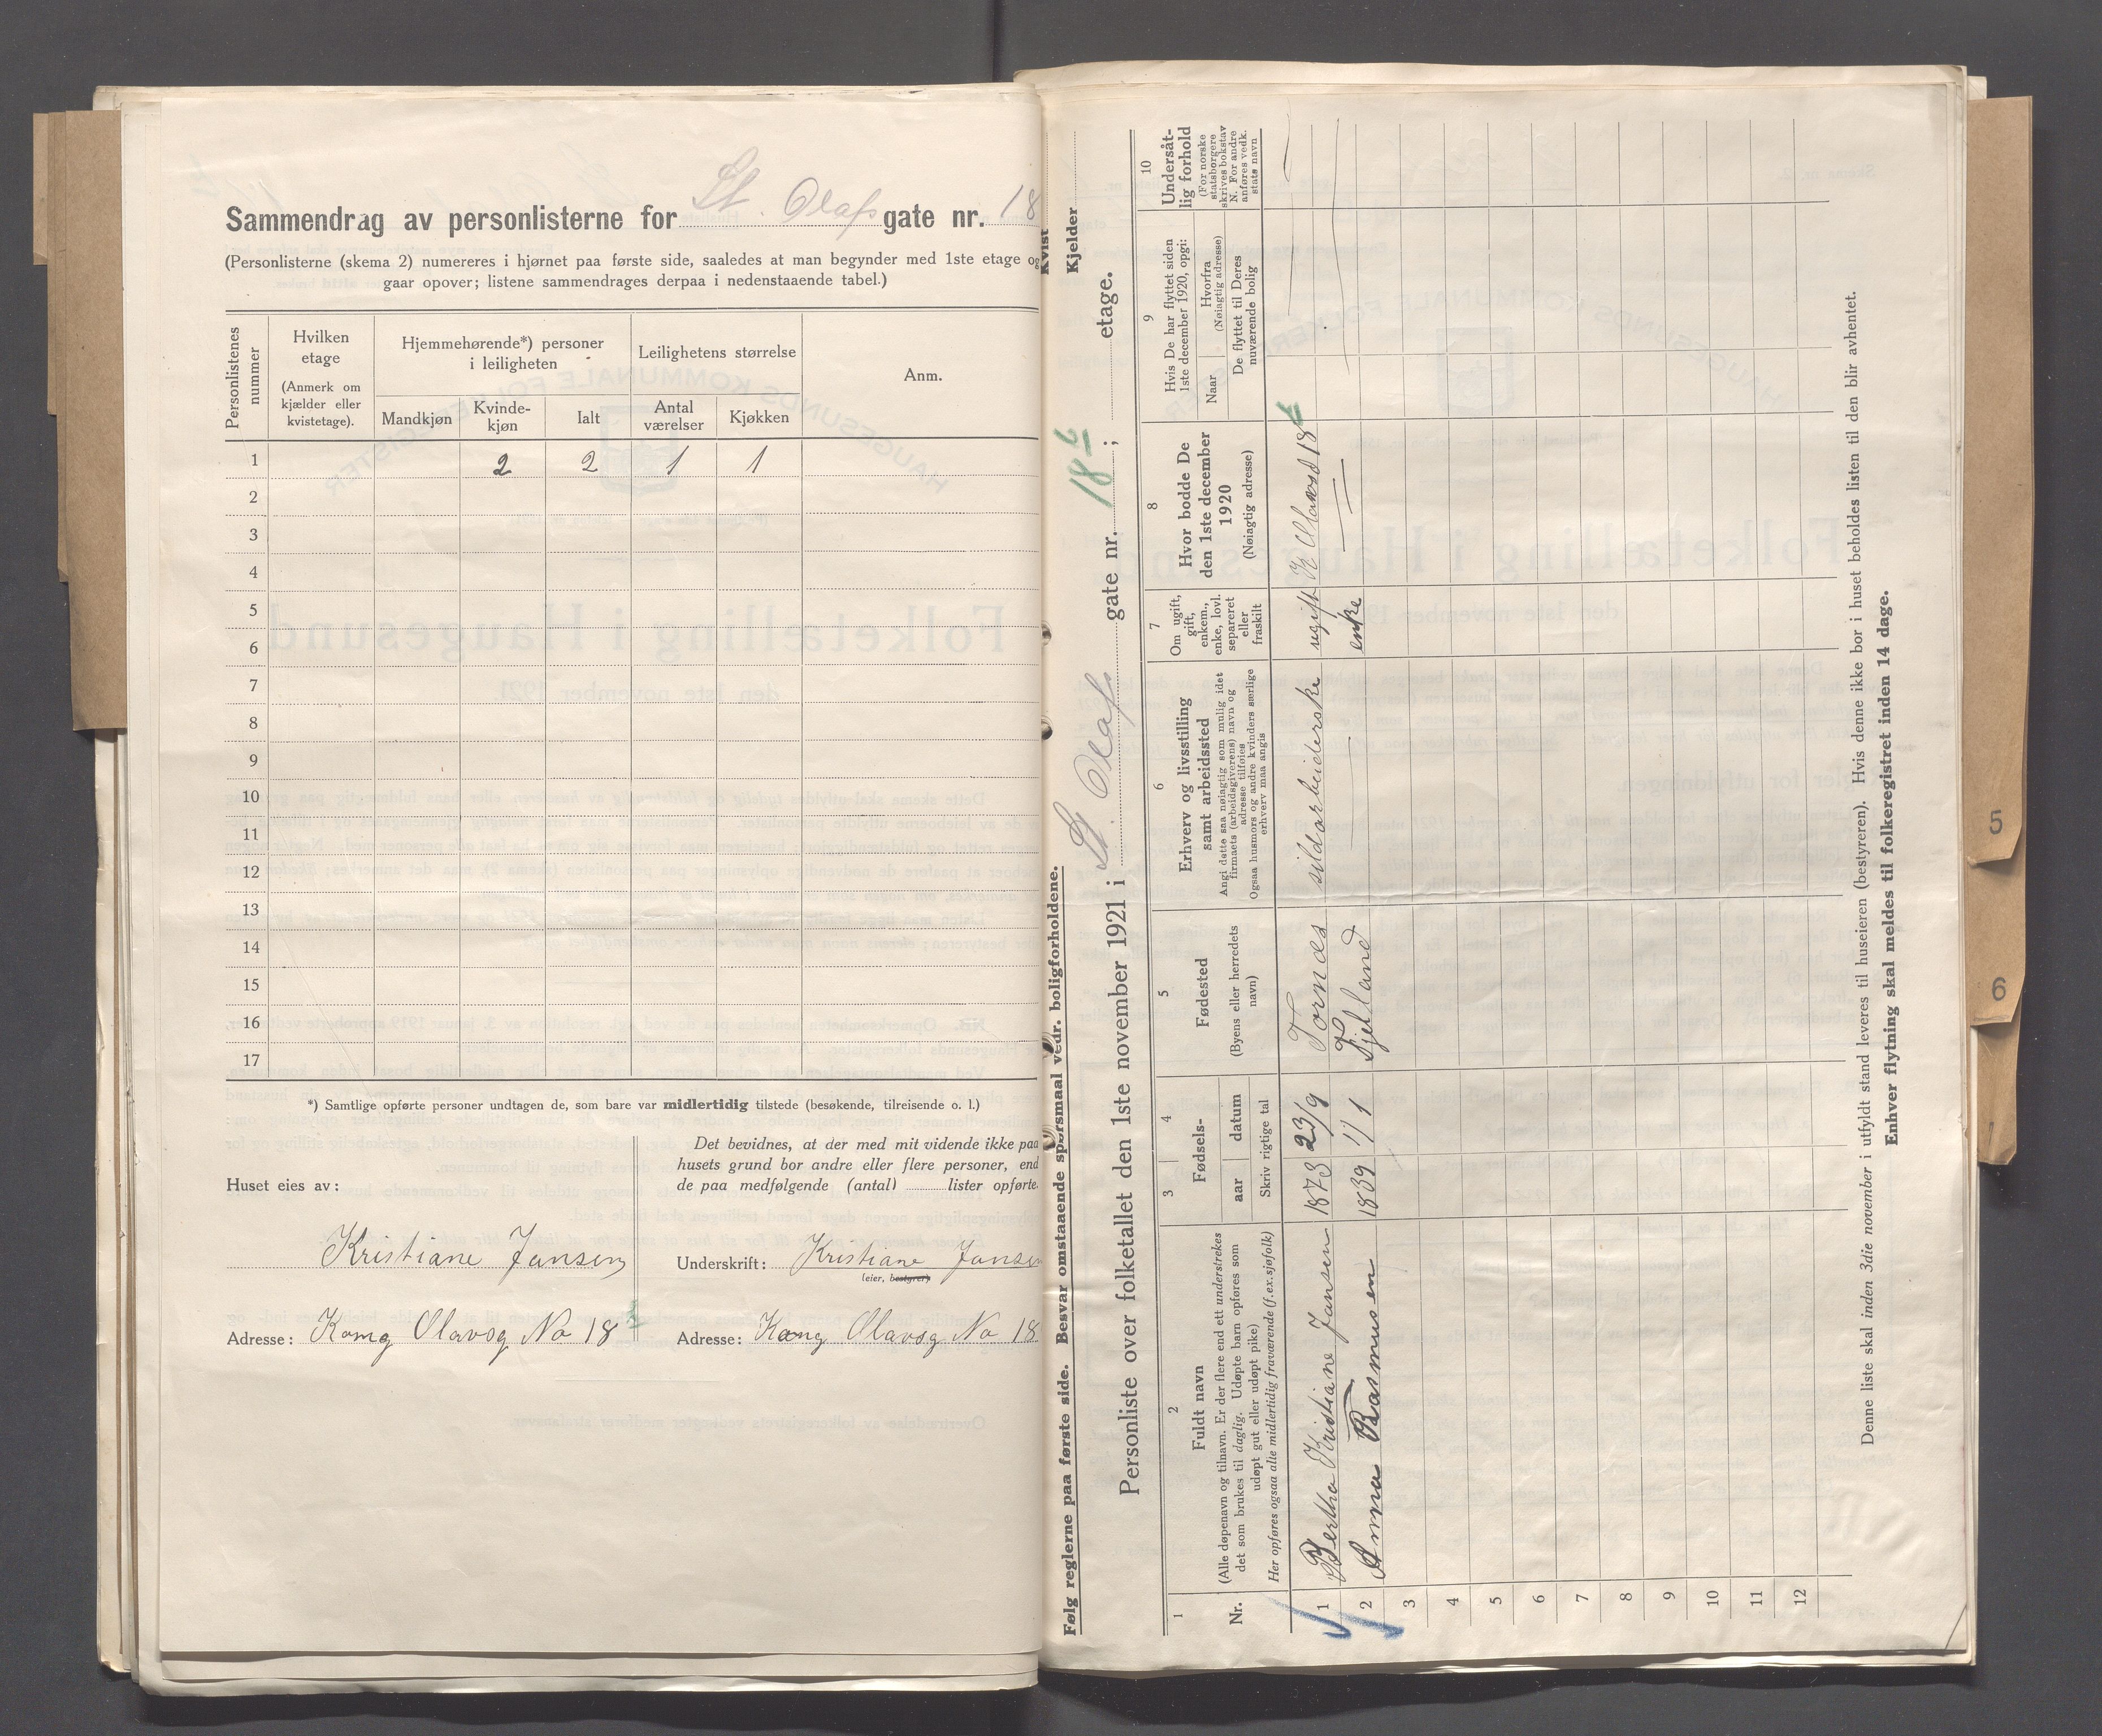 Sammendrag av personlisterne for St. Olafs gate nr. 18
(Personlisterne (skema 2) numereres i hjørnet paa første side, saaledes at man begynder med 1ste etage og
gaar opover; listene sammendrages derpaa i nedenstaaende tabel.)
Personlistenes nummer
Hvilken etage
(Anmerk om kjælder eller kvistetage).
Hjemmehørende*) personer i leiligheten
Leilighetens størrelse
Anm.
Mandkjøn
Kvinde-kjøn
Ialt
Antal værelser
Kjøkken
1 2 2 1 1
2
3
4
5
6
7
8
9
10
11
12
13
14
15
16
17
*) Samtlige opførte personer undtagen de, som bare var midlertidig tilstede (besøkende, tilreisende o. l.)
Huset eies av:
Kristiane Jansen
Adresse: Kong Olavsg No 18
Det bevidnes, at der med mit vidende ikke paa
husets grund bor andre eller flere personer, end
de paa medfølgende (antal) lister opførte.
Underskrift: Kristiane Jansen
(eier, bestyrer)
Adresse: Kong Olavsg No 18
Følg reglerne paa første side. Besvar omstaaende spørsmaal vedr. boligforholdene.
Kvist
Kjelder
Personliste over folketallet den 1ste november 1921 i St. Olafs gate nr. 18 b; etage.
1
Nr.
2
Fuldt navn
(Alle døpenavn og tilnavn. Er der flere end ett understrekes
det som brukes til daglig. Udøpte barn opføres som
udøpt gut eller udøpt pike)
Her opføres ogsaa alle midlertidig fraværende (f.ex. sjøfolk)
3 4
Fødsels-
aar datum
Skriv rigtige tal
5
Fødested
(Byens eller herredets
navn)
6
Erhverv og livsstilling
samt arbeidssted
Angi dette saa nøiagtig som mulig idet
firmaets (arbeidsgiverens) navn og
adresse tilføies
Ogsaa husmors og andre kvinders særlige
erhverv maa angis
7
Om ugift,
gift,
enkem.,
enke, lovl.
separeret
eller
fraskilt
8
Hvor bodde De
den 1ste december
1920
(Nøiagtig adresse)
9
Hvis De har flyttet siden
1ste december 1920, opgi:
Naar
Hvorfra
(Nøiagtig adresse)
De flyttet til Deres
nuværende bolig
10
Undersåt-
lig forhold
(For norske
statsborgere
skrives bokstav
N. For andre
anføres vedk.
stats navn
1 Bertha Kristiane Jansen 1873 23/9 Tornes sildarbeiderske ugift K Olavsd 18 b
2 Anna Rasmusen 1839 1/1 Fjelland enke
3
4
5
6
7
8
9
10
11
12
Denne liste skal inden 3die november i utfyldt stand leveres til huseieren (bestyreren). Hvis denne ikke bor i huset beholdes listen til den blir avhentet.
Enhver flytning skal meldes til folkeregistret inden 14 dage.
5
6